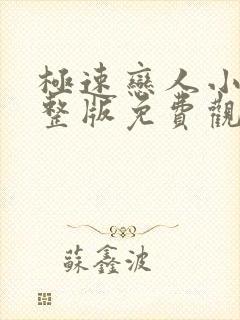 極速戀人小
整版免費觀
蘇鑫波